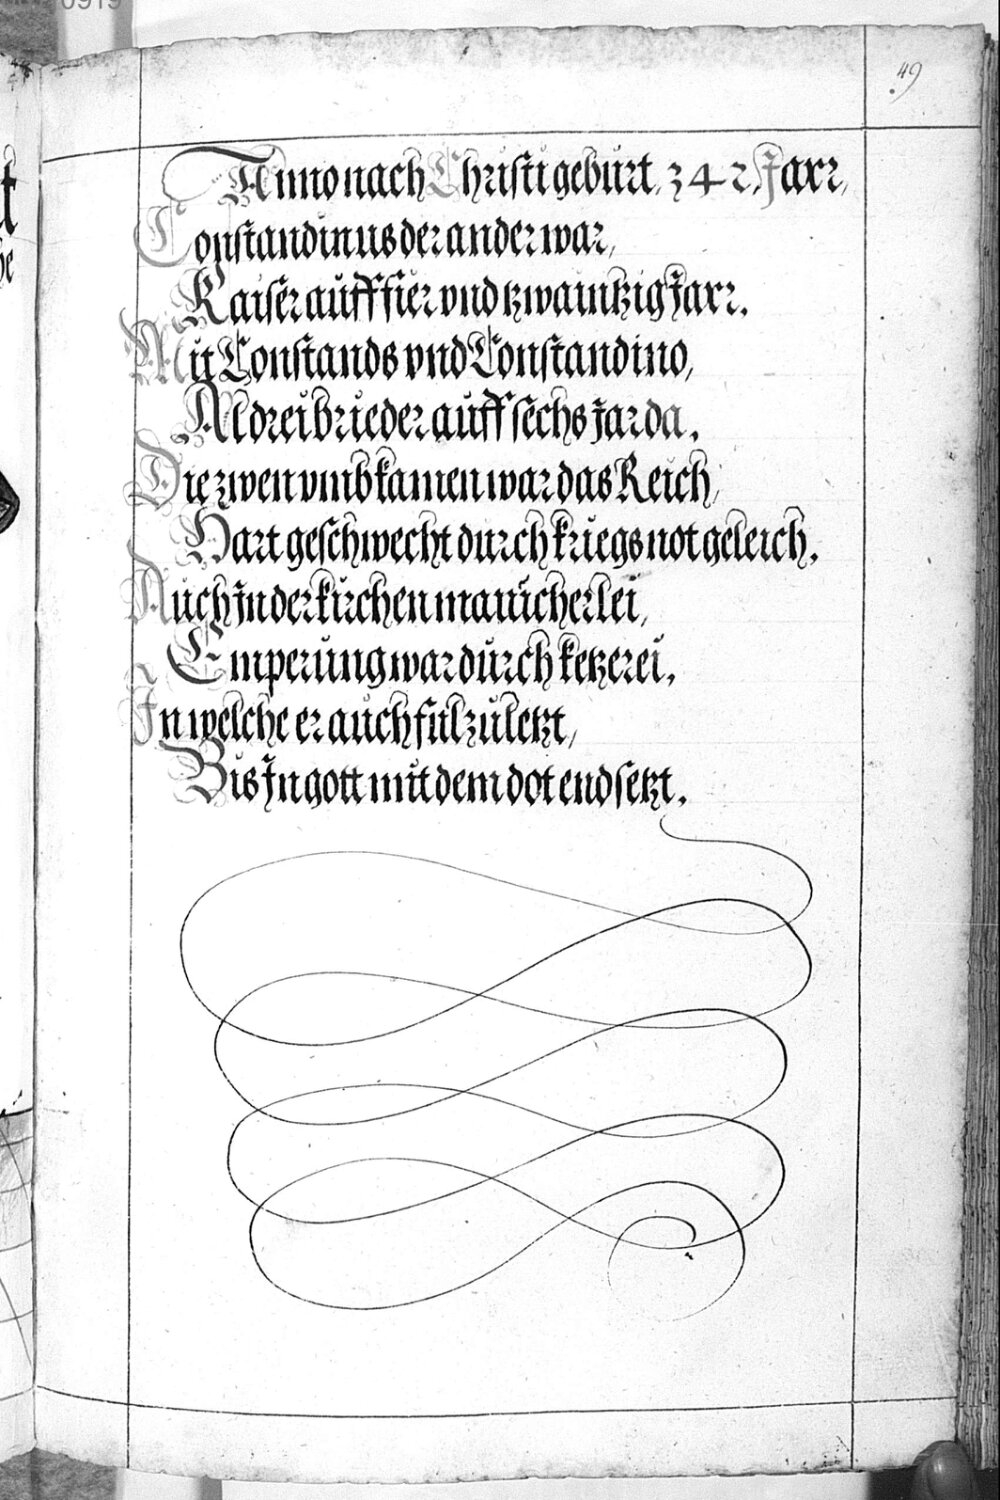 49
Anno nach Christi gebürt 342 Jarr,
Constandinus der ander war,
Kaiser aüff fier vnd tzwaintzig Jarr.
Mit Constands vnd Constandino,
Al drei brieder aüff sechs jar da.
Die zwen vmbkamen war das Reich,
Hart geschwecht dürch kriegs not geleich.
Aüch jn der kirchen manicherlei,
Emperüng war dürch ketzerei.
In welche er aüch ful zü letzt,
Bis In gott mit dem dot endsetzt.